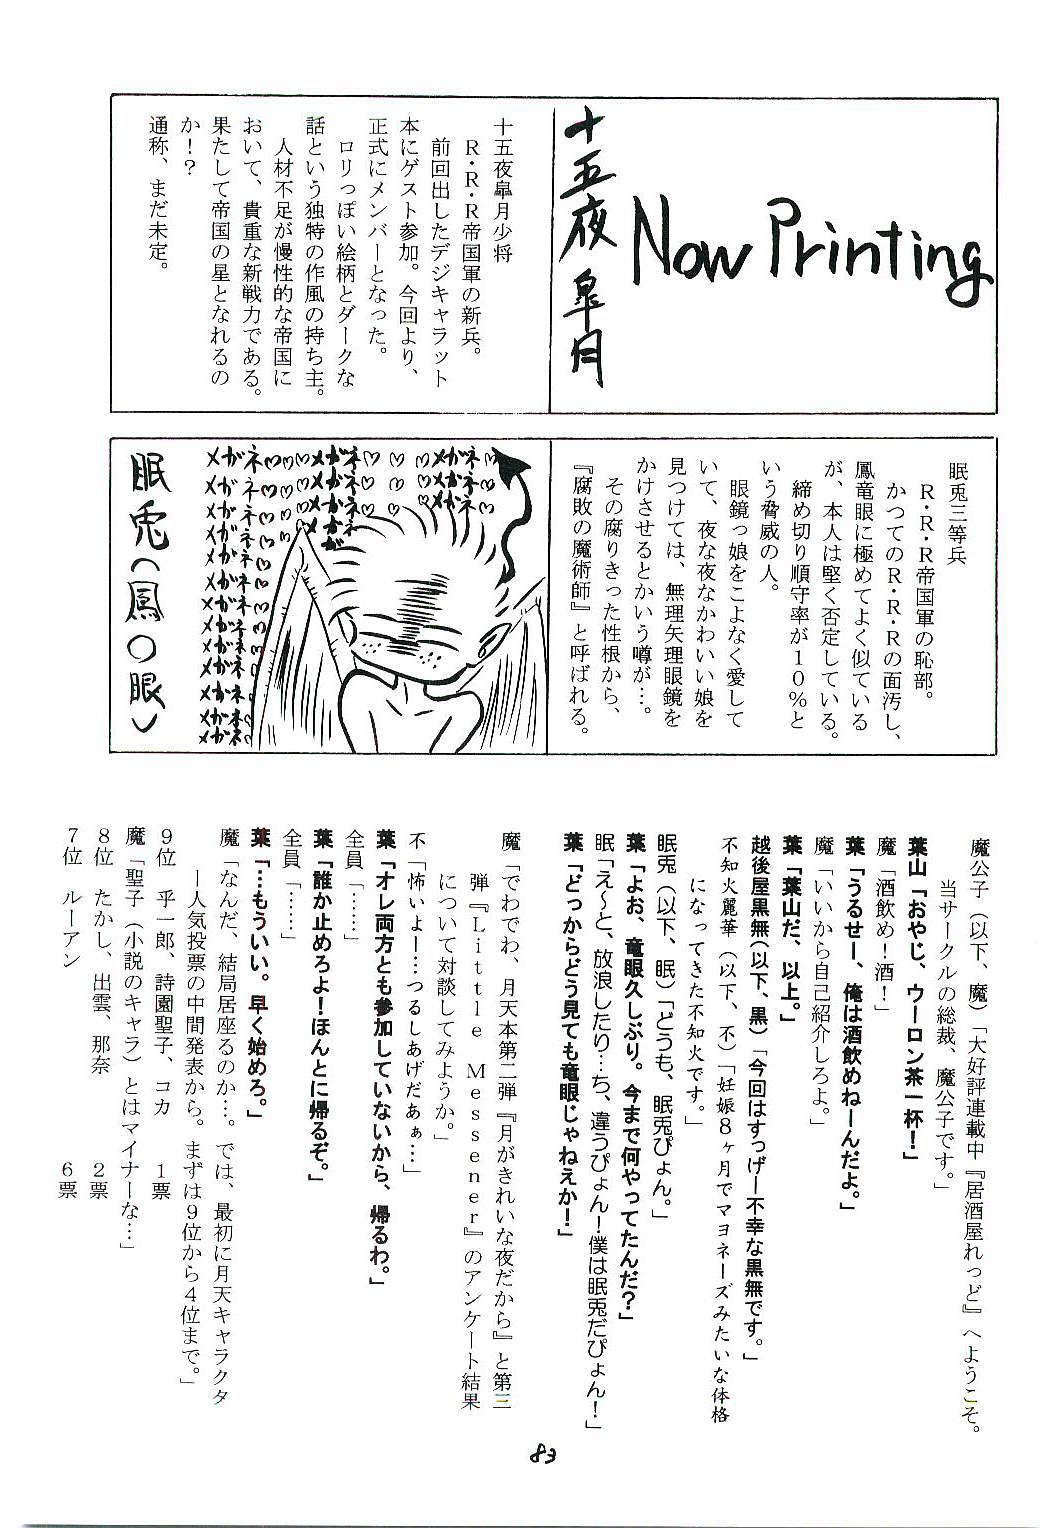 Now Printing
十五夜 皐月
十五夜皐月少将
R・R・R帝国軍の新兵。
前回出したデジキャラット
本にゲスト参加。今回より、
正式にメンバーとなった。
ロリっぽい絵柄とダークな
話という独特の作風の持ち主。
人材不足が慢性的な帝国に
おいて、貴重な新戦力である。
果たして帝国の星となれるの
か！？
通称、まだ未定。
眠兎三等兵
R・R・R帝国軍の恥部。
かつてのR・R・Rの面汚し、
鳳竜眼に極めてよく似ている
が、本人は堅く否定している。
締め切り順守率が１０％と
いう脅威の人。
眼鏡っ娘をこよなく愛して
いて、夜な夜なかわいい娘を
見つけては、無理矢理眼鏡を
かけさせるとかいう噂が…。
その腐りきった性根から、
『腐敗の魔術師』と呼ばれる。
メガネ♡♡♡メガネ♡♡♡メガネ♡
メガネ♡♡♡メガネ♡♡♡メガネ♡
メガネ♡♡♡メガネ♡♡♡メガネ♡
メガネ♡♡♡メガ
メガネ♡♡メガ
メガネ♡
メガネ♡
メガネ♡
メガネ♡
メガネ♡
メガネ♡
メガネ
メガネ
メガネ
メガネ
眠兎（鳳○眼）
魔公子（以下、魔）「大好評連載中『居酒屋れっど』へようこそ。
当サークルの総裁、魔公子です。」
葉山「おやじ、ウーロン茶一杯！」
魔「酒飲め！酒！」
葉「うるせー、俺は酒飲めねーんだよ。」
魔「いいから自己紹介しろよ。」
葉「葉山だ、以上。」
越後屋黒無（以下、黒）「今回はすっげー不幸な黒無です。」
不知火麗華（以下、不）「妊娠８ヶ月でマヨネーズみたいな体格
になってきた不知火です。」
眠兎（以下、眠）「どうも、眠兎ぴょん。」
葉「よお、竜眼久しぶり。今まで何やってたんだ？」
眠「え～と、放浪したり…ち、違うぴょん！僕は眠兎だぴょん！」
葉「どっからどう見ても竜眼じゃねえか！」
魔「でわでわ、月天本第二弾『月がきれいな夜だから』と第三
弾『Ｌｉｔｔｌｅ　Ｍｅｓｓｅｎｅｒ』のアンケート結果
について対談してみようか。」
不「怖いよー…つるしあげだあぁ…」
葉「オレ両方とも参加していないから、帰るわ。」
全員「……」
葉「誰か止めろよ！ほんとに帰るぞ。」
全員「……」
葉「…もういい。早く始めろ。」
魔「なんだ、結局居座るのか…。では、最初に月天キャラクタ
ー人気投票の中間発表から。まずは９位から４位まで。」
９位　乎一郎、詩園聖子、コカ　１票
魔「聖子（小説のキャラ）とはマイナーな…」
８位　たかし、出雲、那奈　２票
７位　ルーアン　６票
83